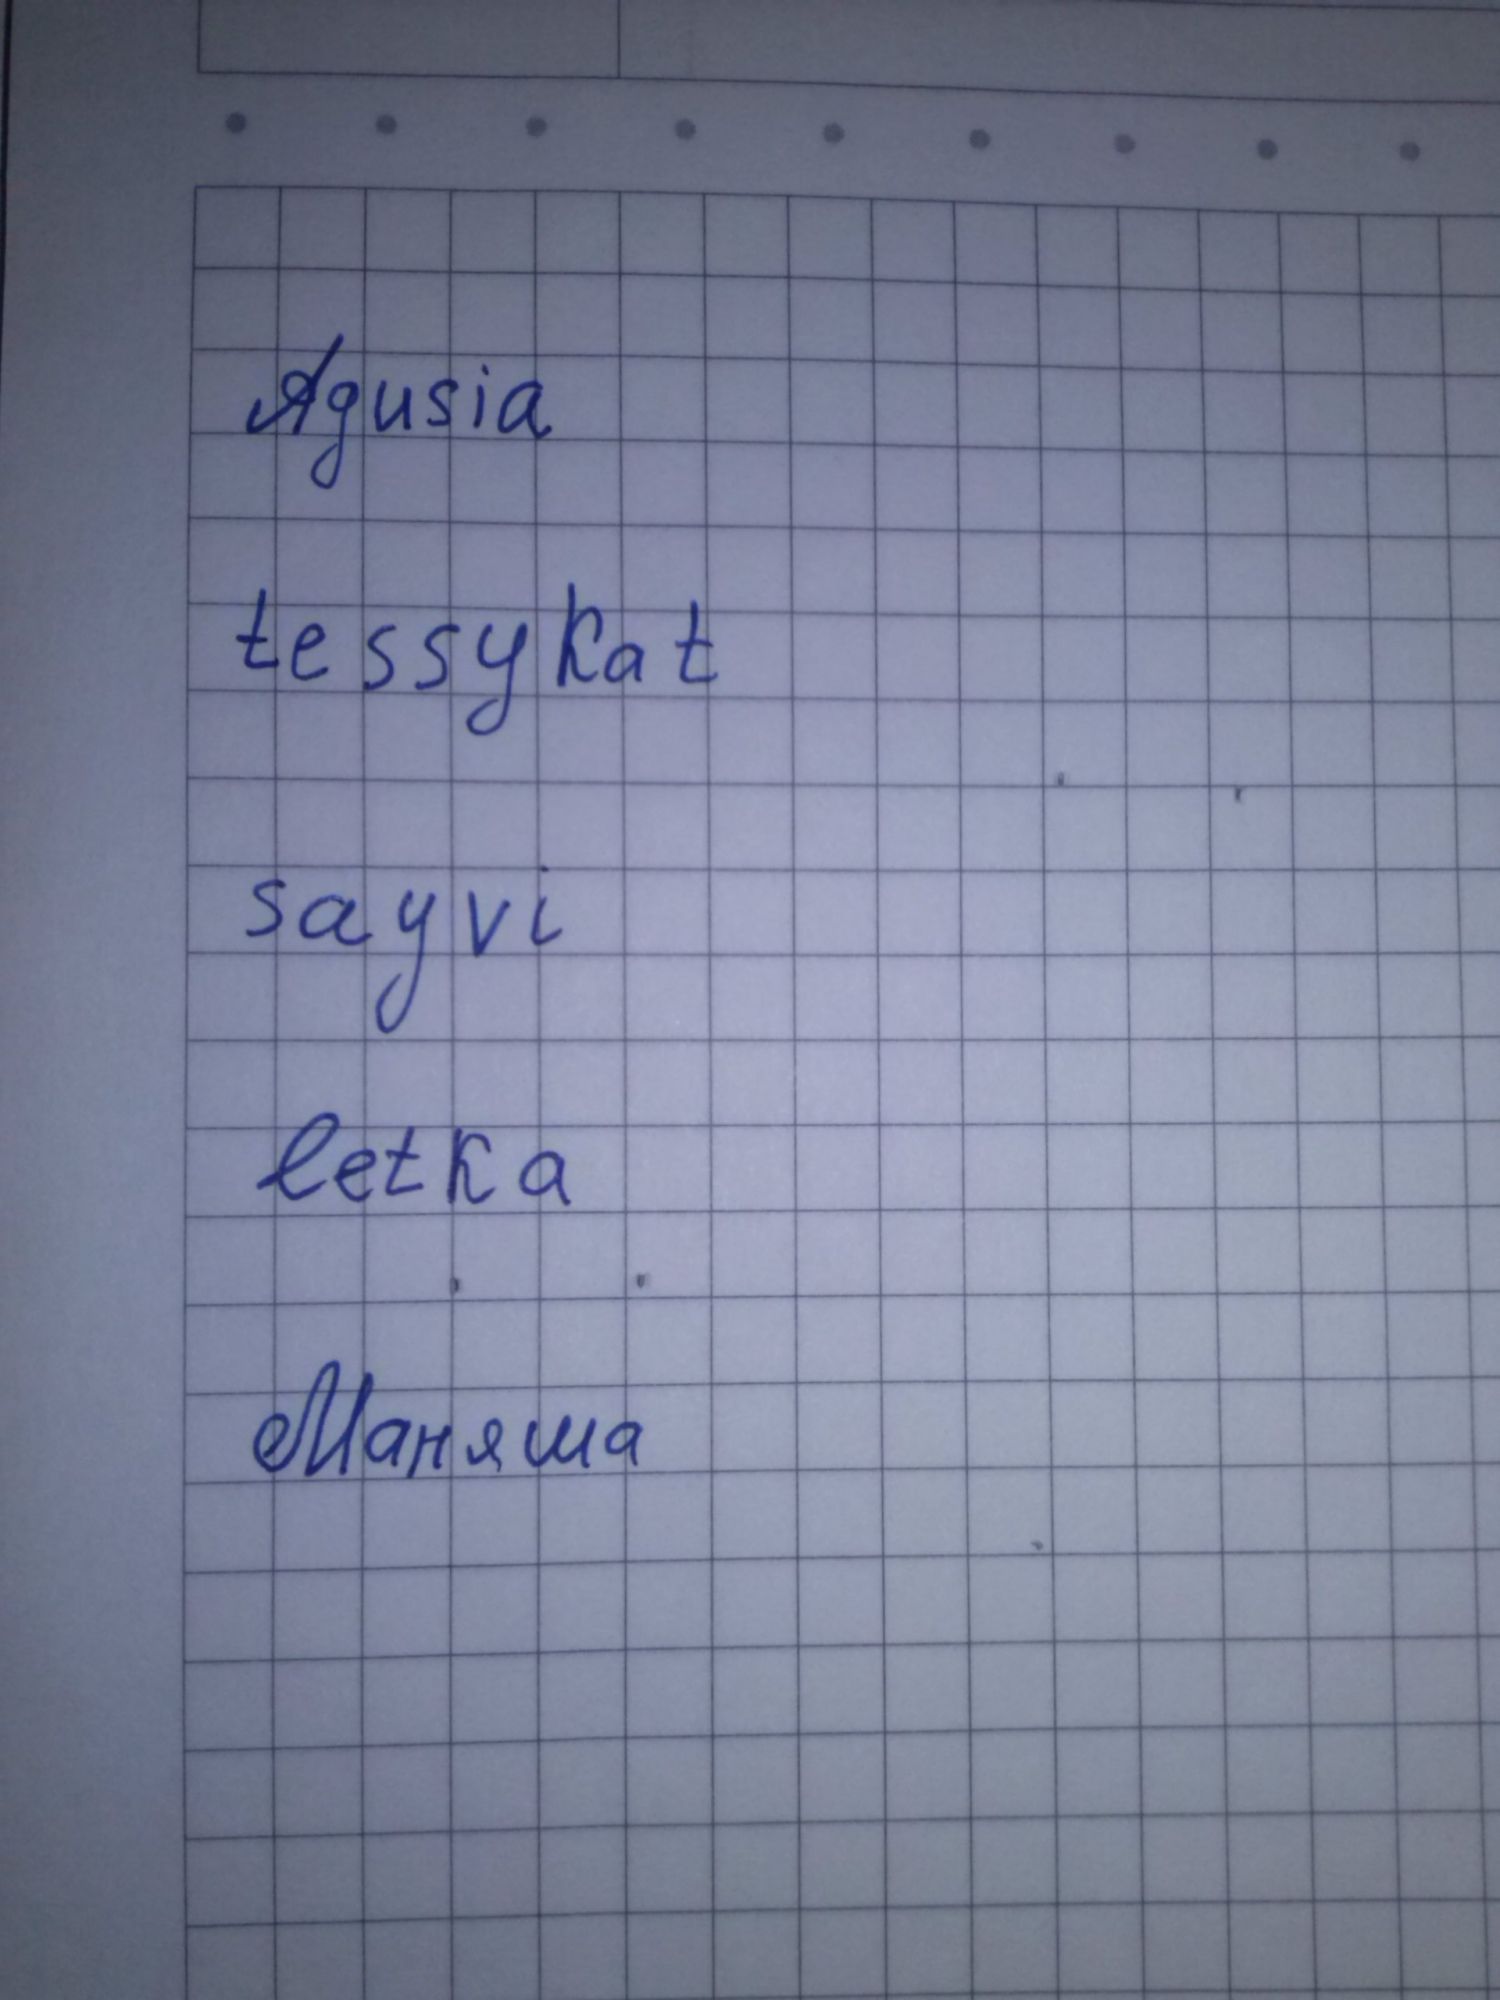 Agusia
tessykat
sayvi
letka
Маняша